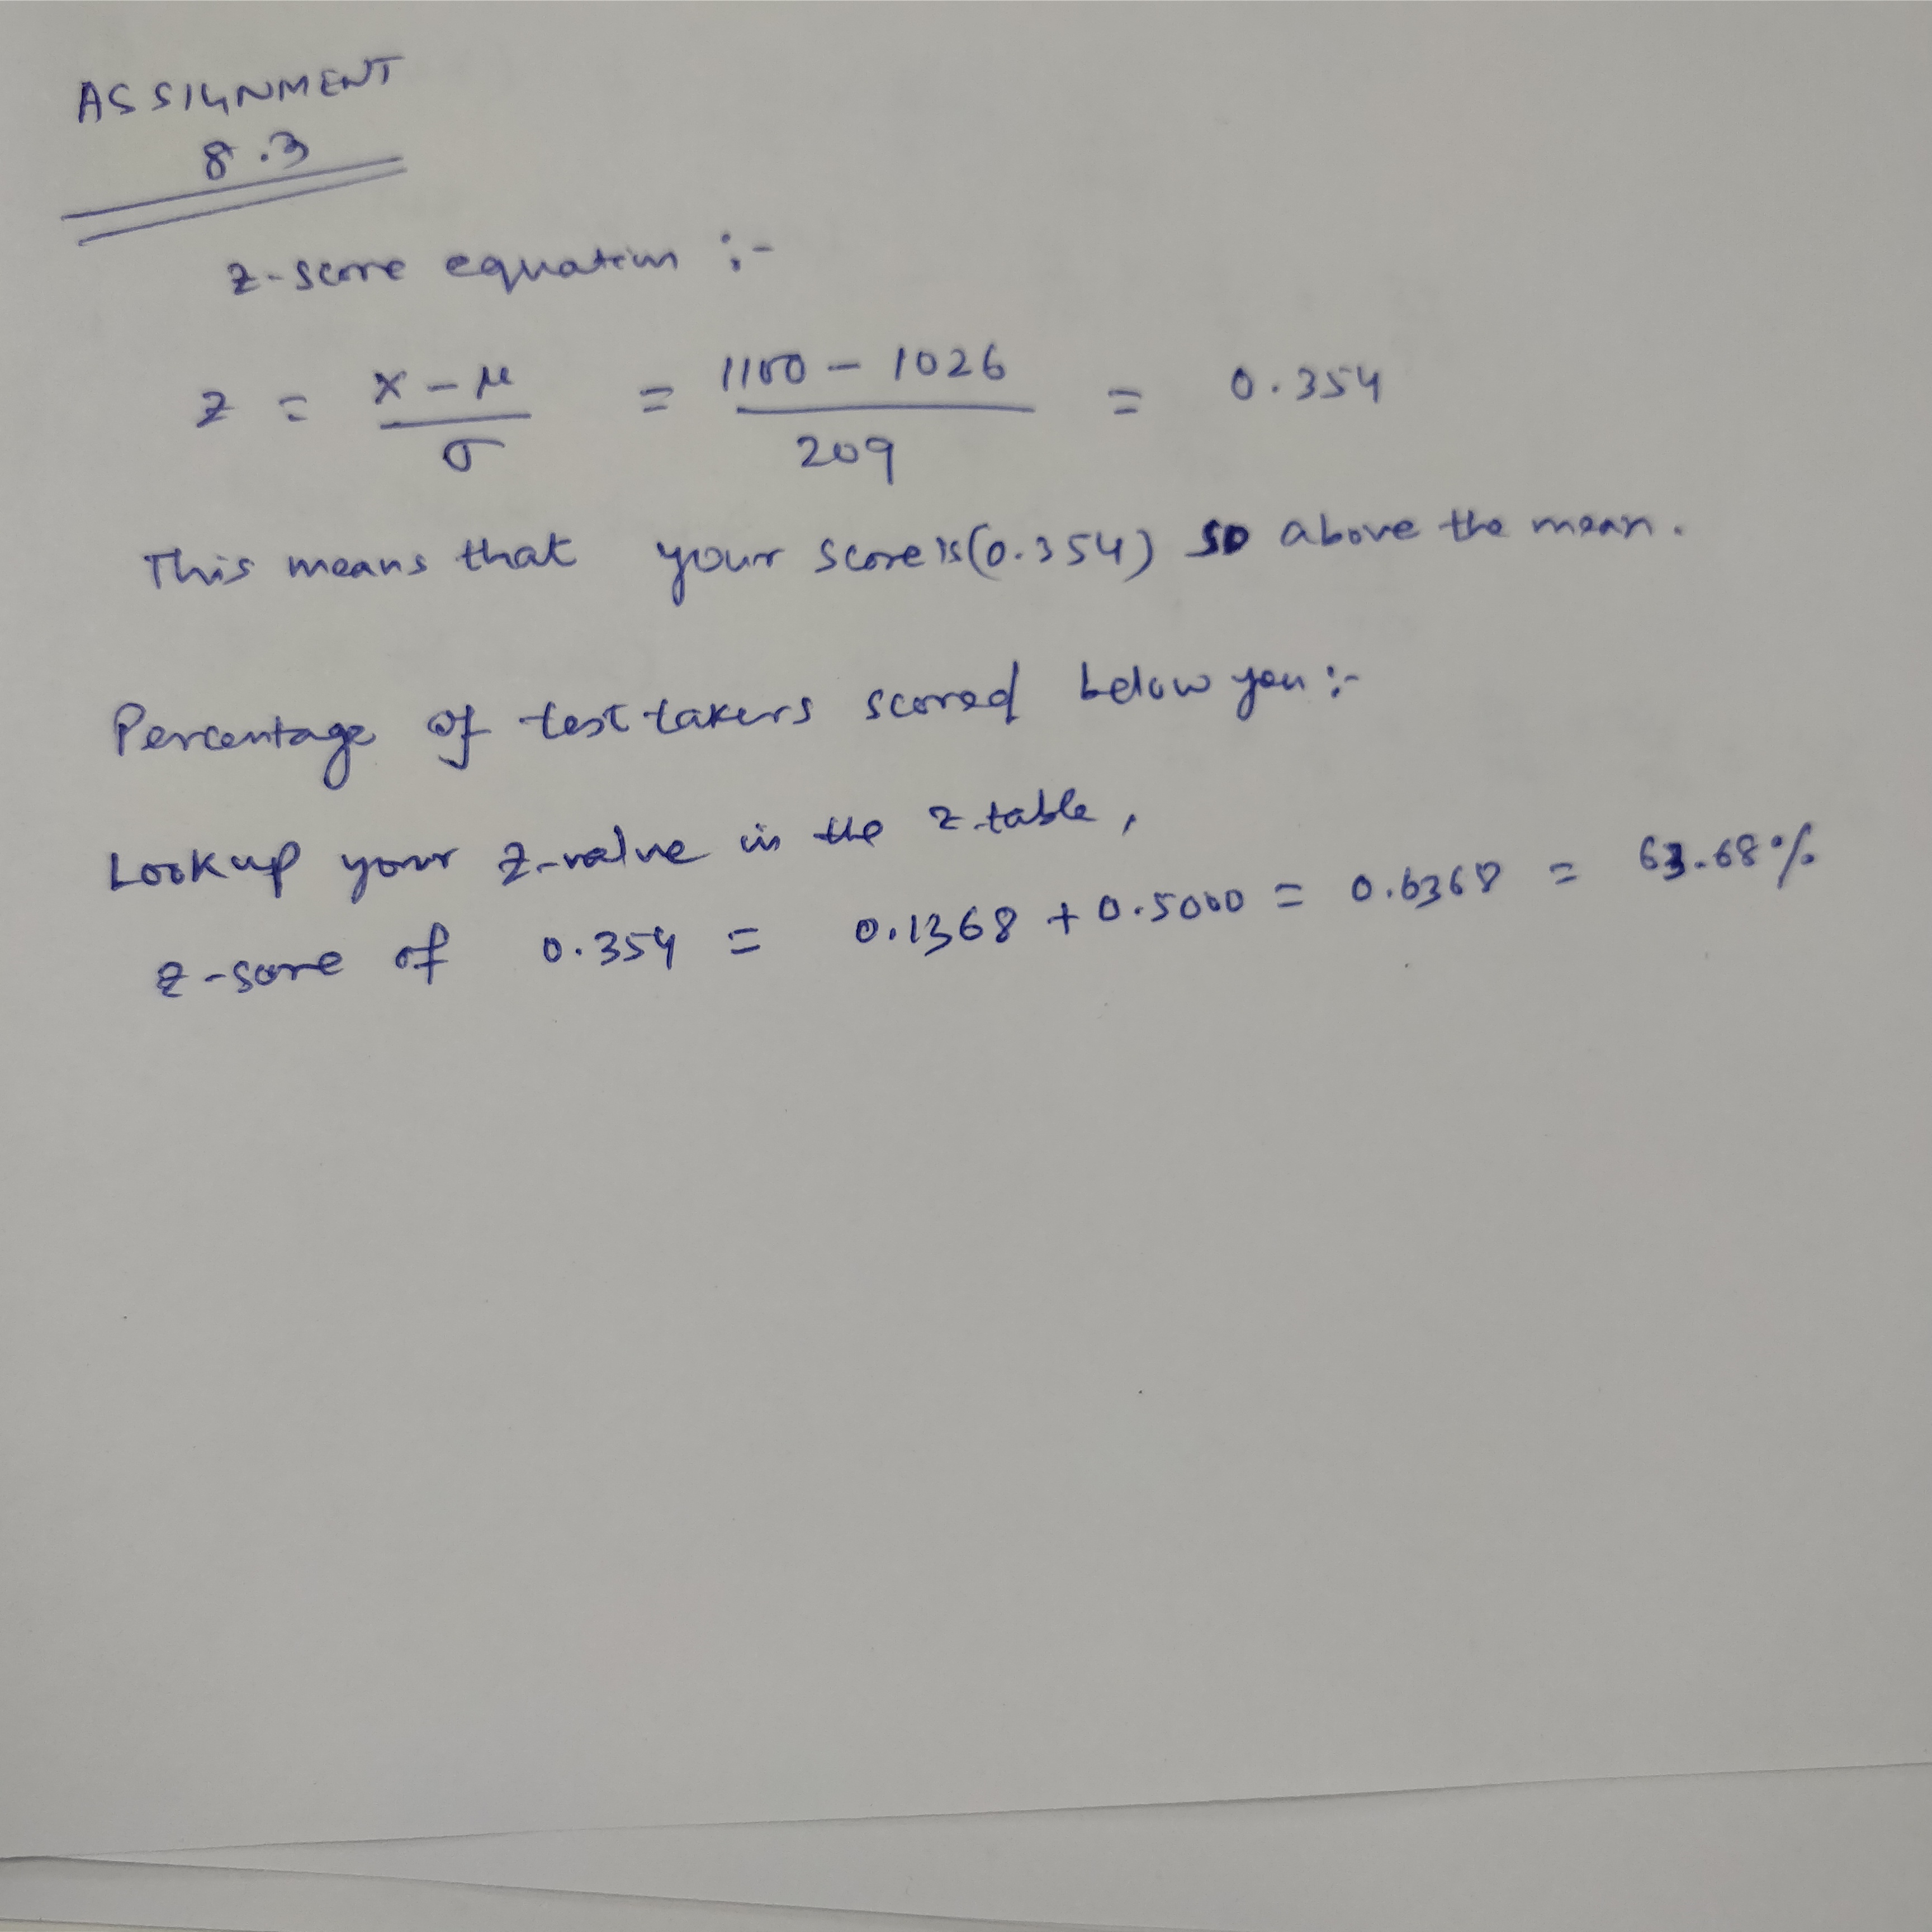 ASSIGNMENT
8.3
z-score equation :-
z = x - μ / σ = 1100 - 1026 / 209 = 0.354
This means that your score is (0.354) SD above the mean.
Percentage of test takers scored below you :-
Lookup your z-value in the z table,
z-score of 0.354 = 0.1368 + 0.5000 = 0.6368 = 63.68%